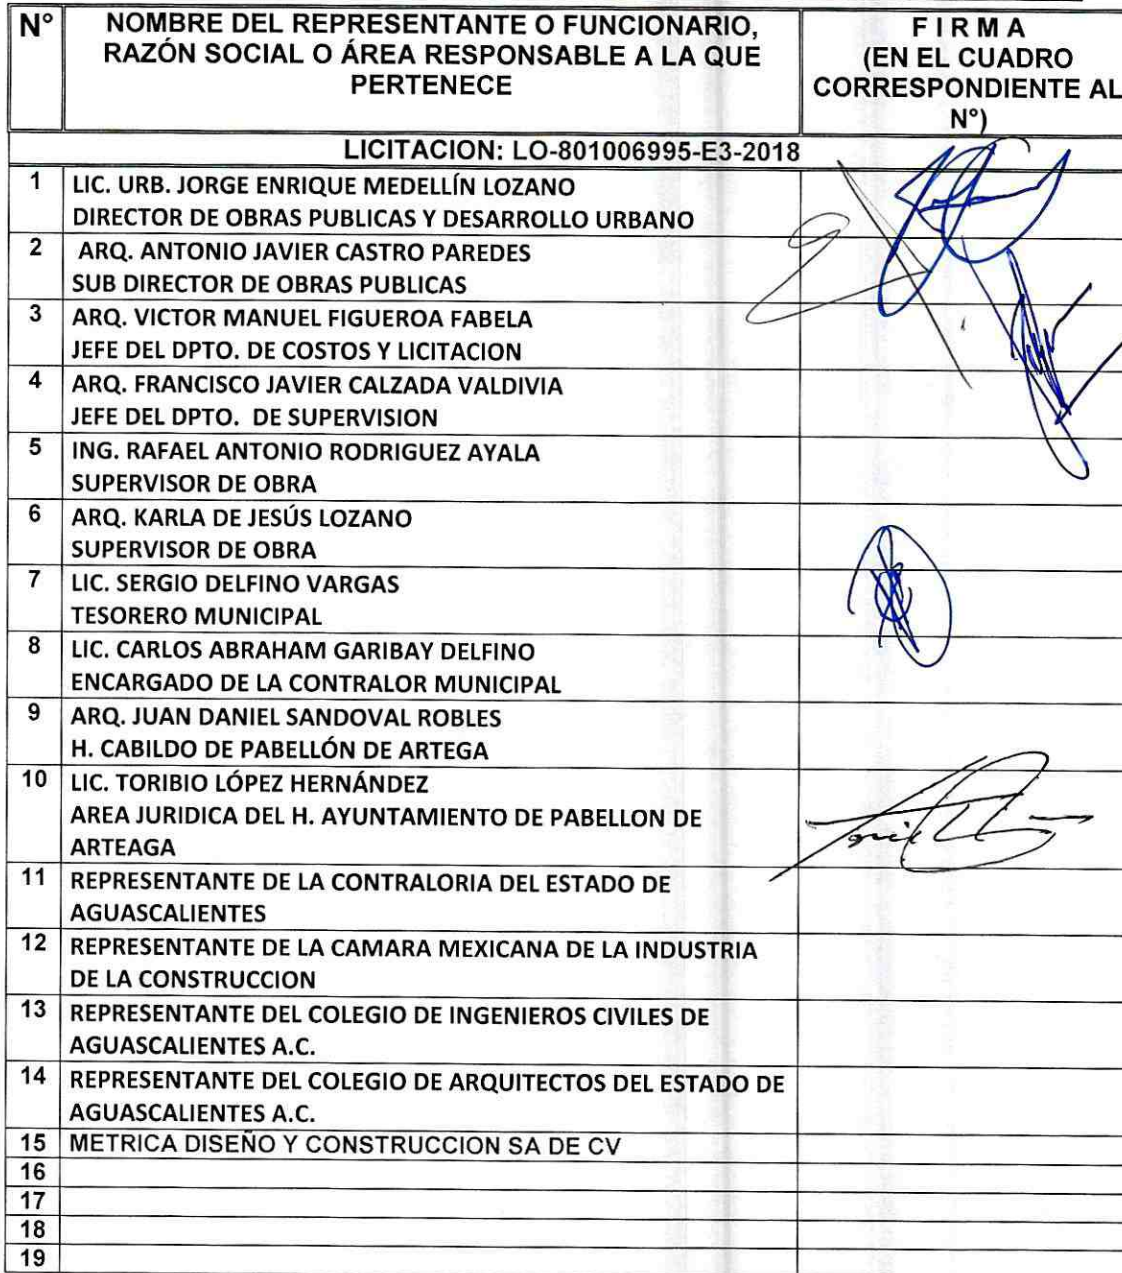 N°
NOMBRE DEL REPRESENTANTE O FUNCIONARIO,
RAZÓN SOCIAL O ÁREA RESPONSABLE A LA QUE
PERTENECE
F I R M A
(EN EL CUADRO
CORRESPONDIENTE AL
N°)
LICITACION: LO-801006995-E3-2018
1 LIC. URB. JORGE ENRIQUE MEDELLÍN LOZANO
DIRECTOR DE OBRAS PUBLICAS Y DESARROLLO URBANO
2 ARQ. ANTONIO JAVIER CASTRO PAREDES
SUB DIRECTOR DE OBRAS PUBLICAS
3 ARQ. VICTOR MANUEL FIGUEROA FABELA
JEFE DEL DPTO. DE COSTOS Y LICITACION
4 ARQ. FRANCISCO JAVIER CALZADA VALDIVIA
JEFE DEL DPTO. DE SUPERVISION
5 ING. RAFAEL ANTONIO RODRIGUEZ AYALA
SUPERVISOR DE OBRA
6 ARQ. KARLA DE JESÚS LOZANO
SUPERVISOR DE OBRA
7 LIC. SERGIO DELFINO VARGAS
TESORERO MUNICIPAL
8 LIC. CARLOS ABRAHAM GARIBAY DELFINO
ENCARGADO DE LA CONTRALOR MUNICIPAL
9 ARQ. JUAN DANIEL SANDOVAL ROBLES
H. CABILDO DE PABELLÓN DE ARTEGA
10 LIC. TORIBIO LÓPEZ HERNÁNDEZ
AREA JURIDICA DEL H. AYUNTAMIENTO DE PABELLON DE
ARTEAGA
11 REPRESENTANTE DE LA CONTRALORIA DEL ESTADO DE
AGUASCALIENTES
12 REPRESENTANTE DE LA CAMARA MEXICANA DE LA INDUSTRIA
DE LA CONSTRUCCION
13 REPRESENTANTE DEL COLEGIO DE INGENIEROS CIVILES DE
AGUASCALIENTES A.C.
14 REPRESENTANTE DEL COLEGIO DE ARQUITECTOS DEL ESTADO DE
AGUASCALIENTES A.C.
15 METRICA DISEÑO Y CONSTRUCCION SA DE CV
16
17
18
19